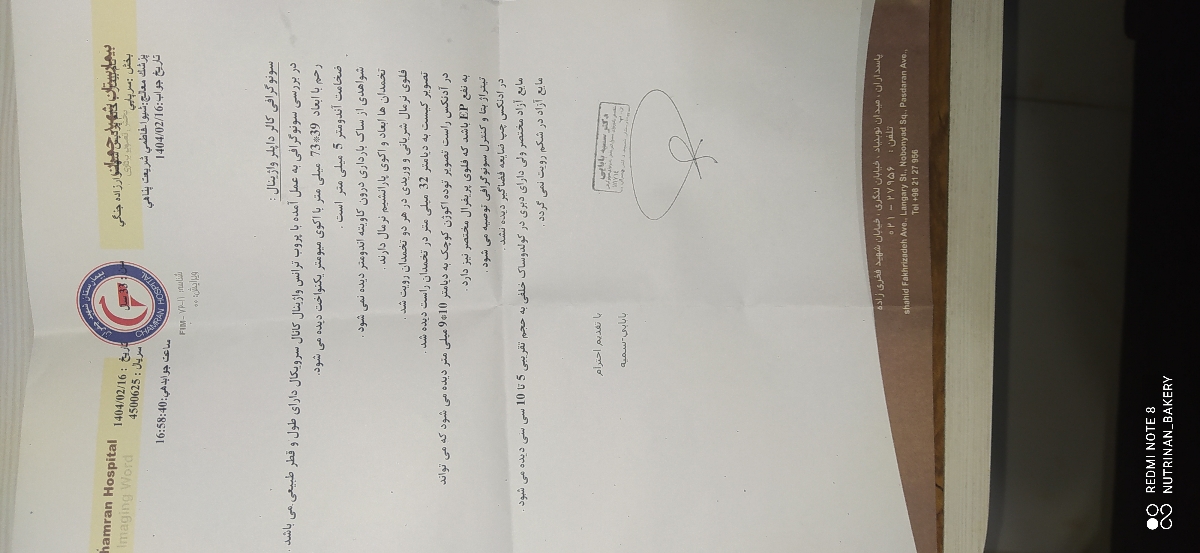 Chamran Hospital
Imaging Word
بیمارستان شهید چمران
CHAMRAN HOSPITAL
تاریخ : 1404/02/16
سریال : 4500625
ساعت جوابدهی:16:58:40
بخش :سرپایی
پزشک معالج:شیوا فاطمی شریعت پناهی
تاریخ جواب:1404/02/16
شناسه: FIIM-۷۶-۱۱
ویرایش: ۰۰
سونوگرافی کالر داپلر واژینال :
در بررسی سونوگرافی به عمل آمده با پروب ترانس واژینال کانال سرویکال دارای طول و قطر طبیعی می باشد .
رحم با ابعاد 39*73 میلی متر با اکوی میومتر یکنواخت دیده می شود.
ضخامت آندومتر 5 میلی متر است .
شواهدی از ساک بارداری درون کاویته اندومتر دیده نمی شود.
تخمدان ها ابعاد و اکوی پارانشیم نرمال دارند .
فلوی نرمال شریانی و وریدی در هر دو تخمدان رویت شد .
تصویر کیست به دیامتر 32 میلی متر در تخمدان راست دیده شد .
در آدنکس راست تصویر توده اکوژن کوچک به دیامتر 10*9 میلی متر دیده می شود که می تواند
به نفع EP باشد که فلوی پریفرال مختصر نیز دارد.
تیتراژ بتا و کنترل سونوگرافی توصیه می شود .
در ادنکس چپ ضایعه فضاگیر دیده نشد.
مایع آزاد مختصر ولی دارای دبری در کولدوساک خلفی به حجم تقریبی 5 تا 10 سی سی دیده می شود .
مایع آزاد در شکم رویت نمی گردد .
با تقدیم احترام
بابایی-سمیه
دکتر سمیه بابایی
پاسداران ، میدان نوبنیاد ، خیابان لنگری ، خیابان شهید فخری زاده
تلفن : ۲۷۹۵۶ - ۰۲۱
shahid Fakhrizadeh Ave., Langary St., Nobonyad Sq., Pasdaran Ave.,
Tel +98 21 27 956
REDMI NOTE 8
NUTRINAN_BAKERY